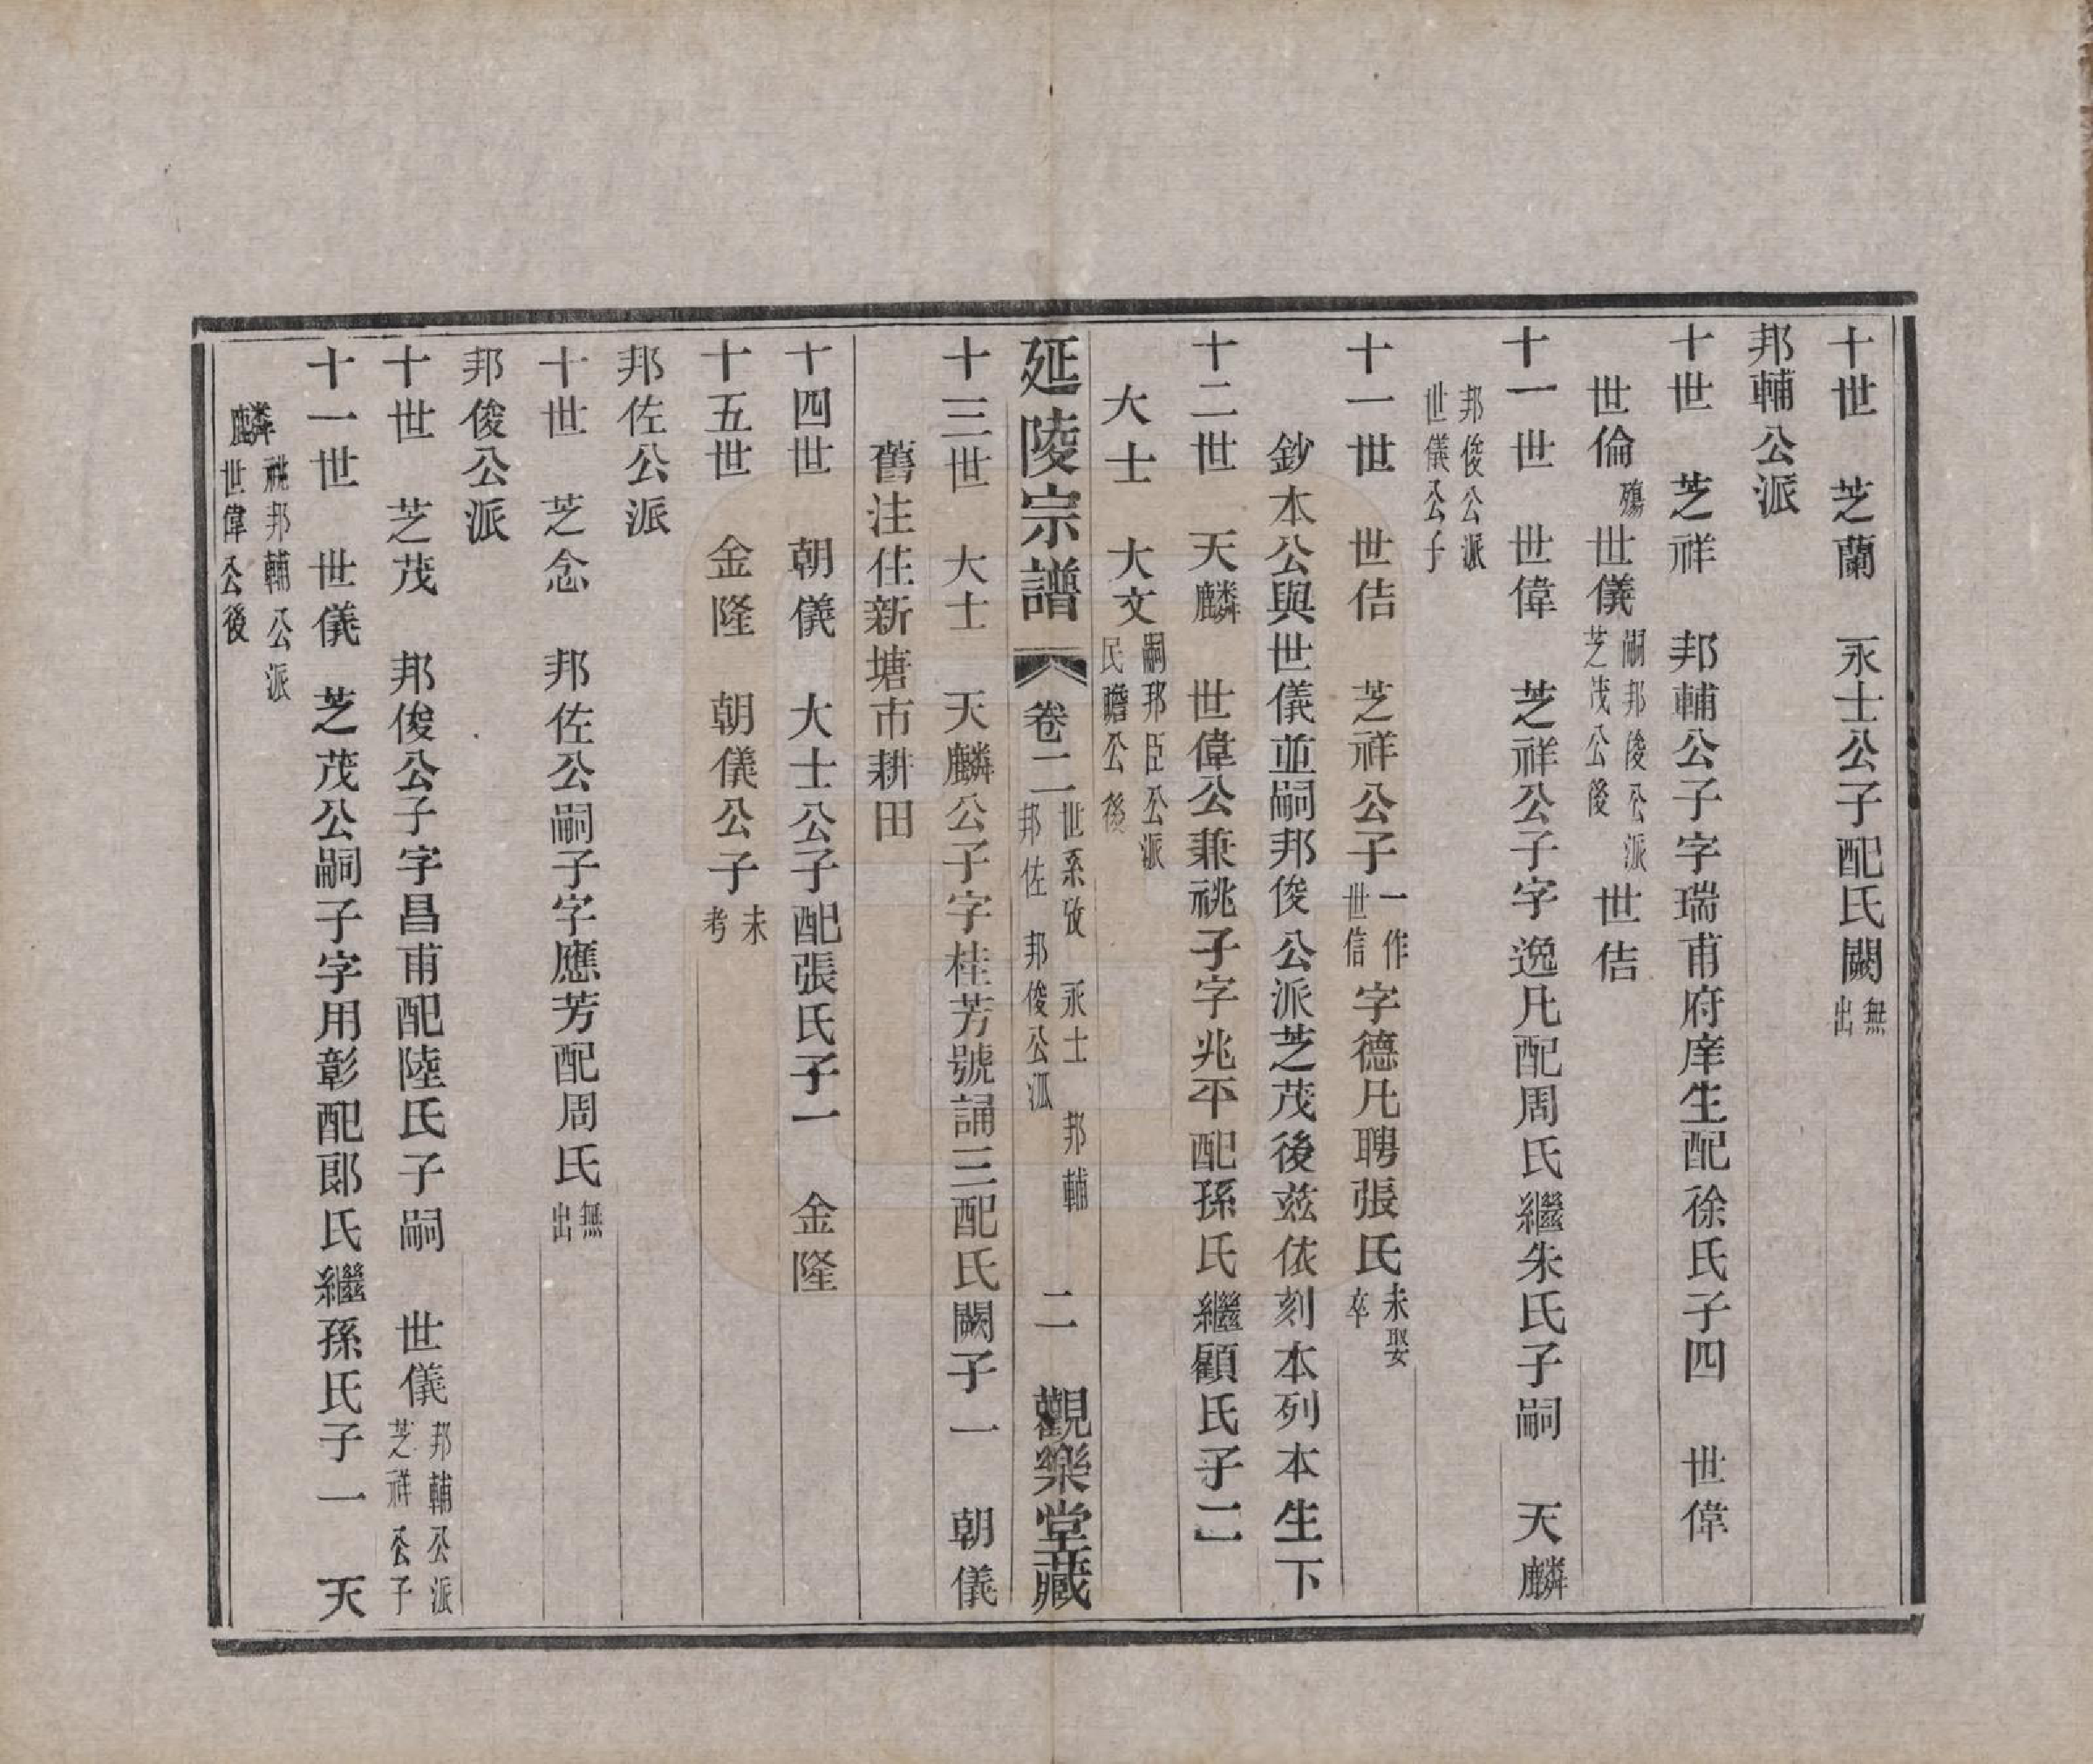 十世　芝蘭　永士公子配氏闕無出
邦輔公派
十世　芝祥　邦輔公子字瑞甫府庠生配徐氏子四　世偉
世倫殤　世儀嗣邦俊公派芝茂公後　世佶
十一世　世偉　芝祥公子字逸凡配周氏繼朱氏子嗣　天麟
邦俊公派世儀公子
十一世　世佶　芝祥公子一作世信字德凡聘張氏未娶卒
鈔本公與世儀並嗣邦俊公派芝茂後玆依刻本列本生下
十二世　天麟　世偉公兼祧子字兆平配孫氏繼顧氏子二
大士　大文嗣邦臣公派民瞻公後
延陵宗譜　卷二　世系攷　永士　邦輔　邦佐　邦俊公派　二　觀樂堂藏
十三世　大士　天麟公子字桂芳號誦三配氏闕子一　朝儀
舊注住新塘市耕田
十四世　朝儀　大士公子配張氏子一　金隆
十五世　金隆　朝儀公子未考
邦佐公派
十世　芝念　邦佐公嗣子字應芳配周氏無出
邦俊公派
十世　芝茂　邦俊公子字昌甫配陸氏子嗣　世儀邦輔公派芝祥公子
十一世　世儀　芝茂公嗣子字用彰配郎氏繼孫氏子一　天
麟祧邦輔公派世偉公後